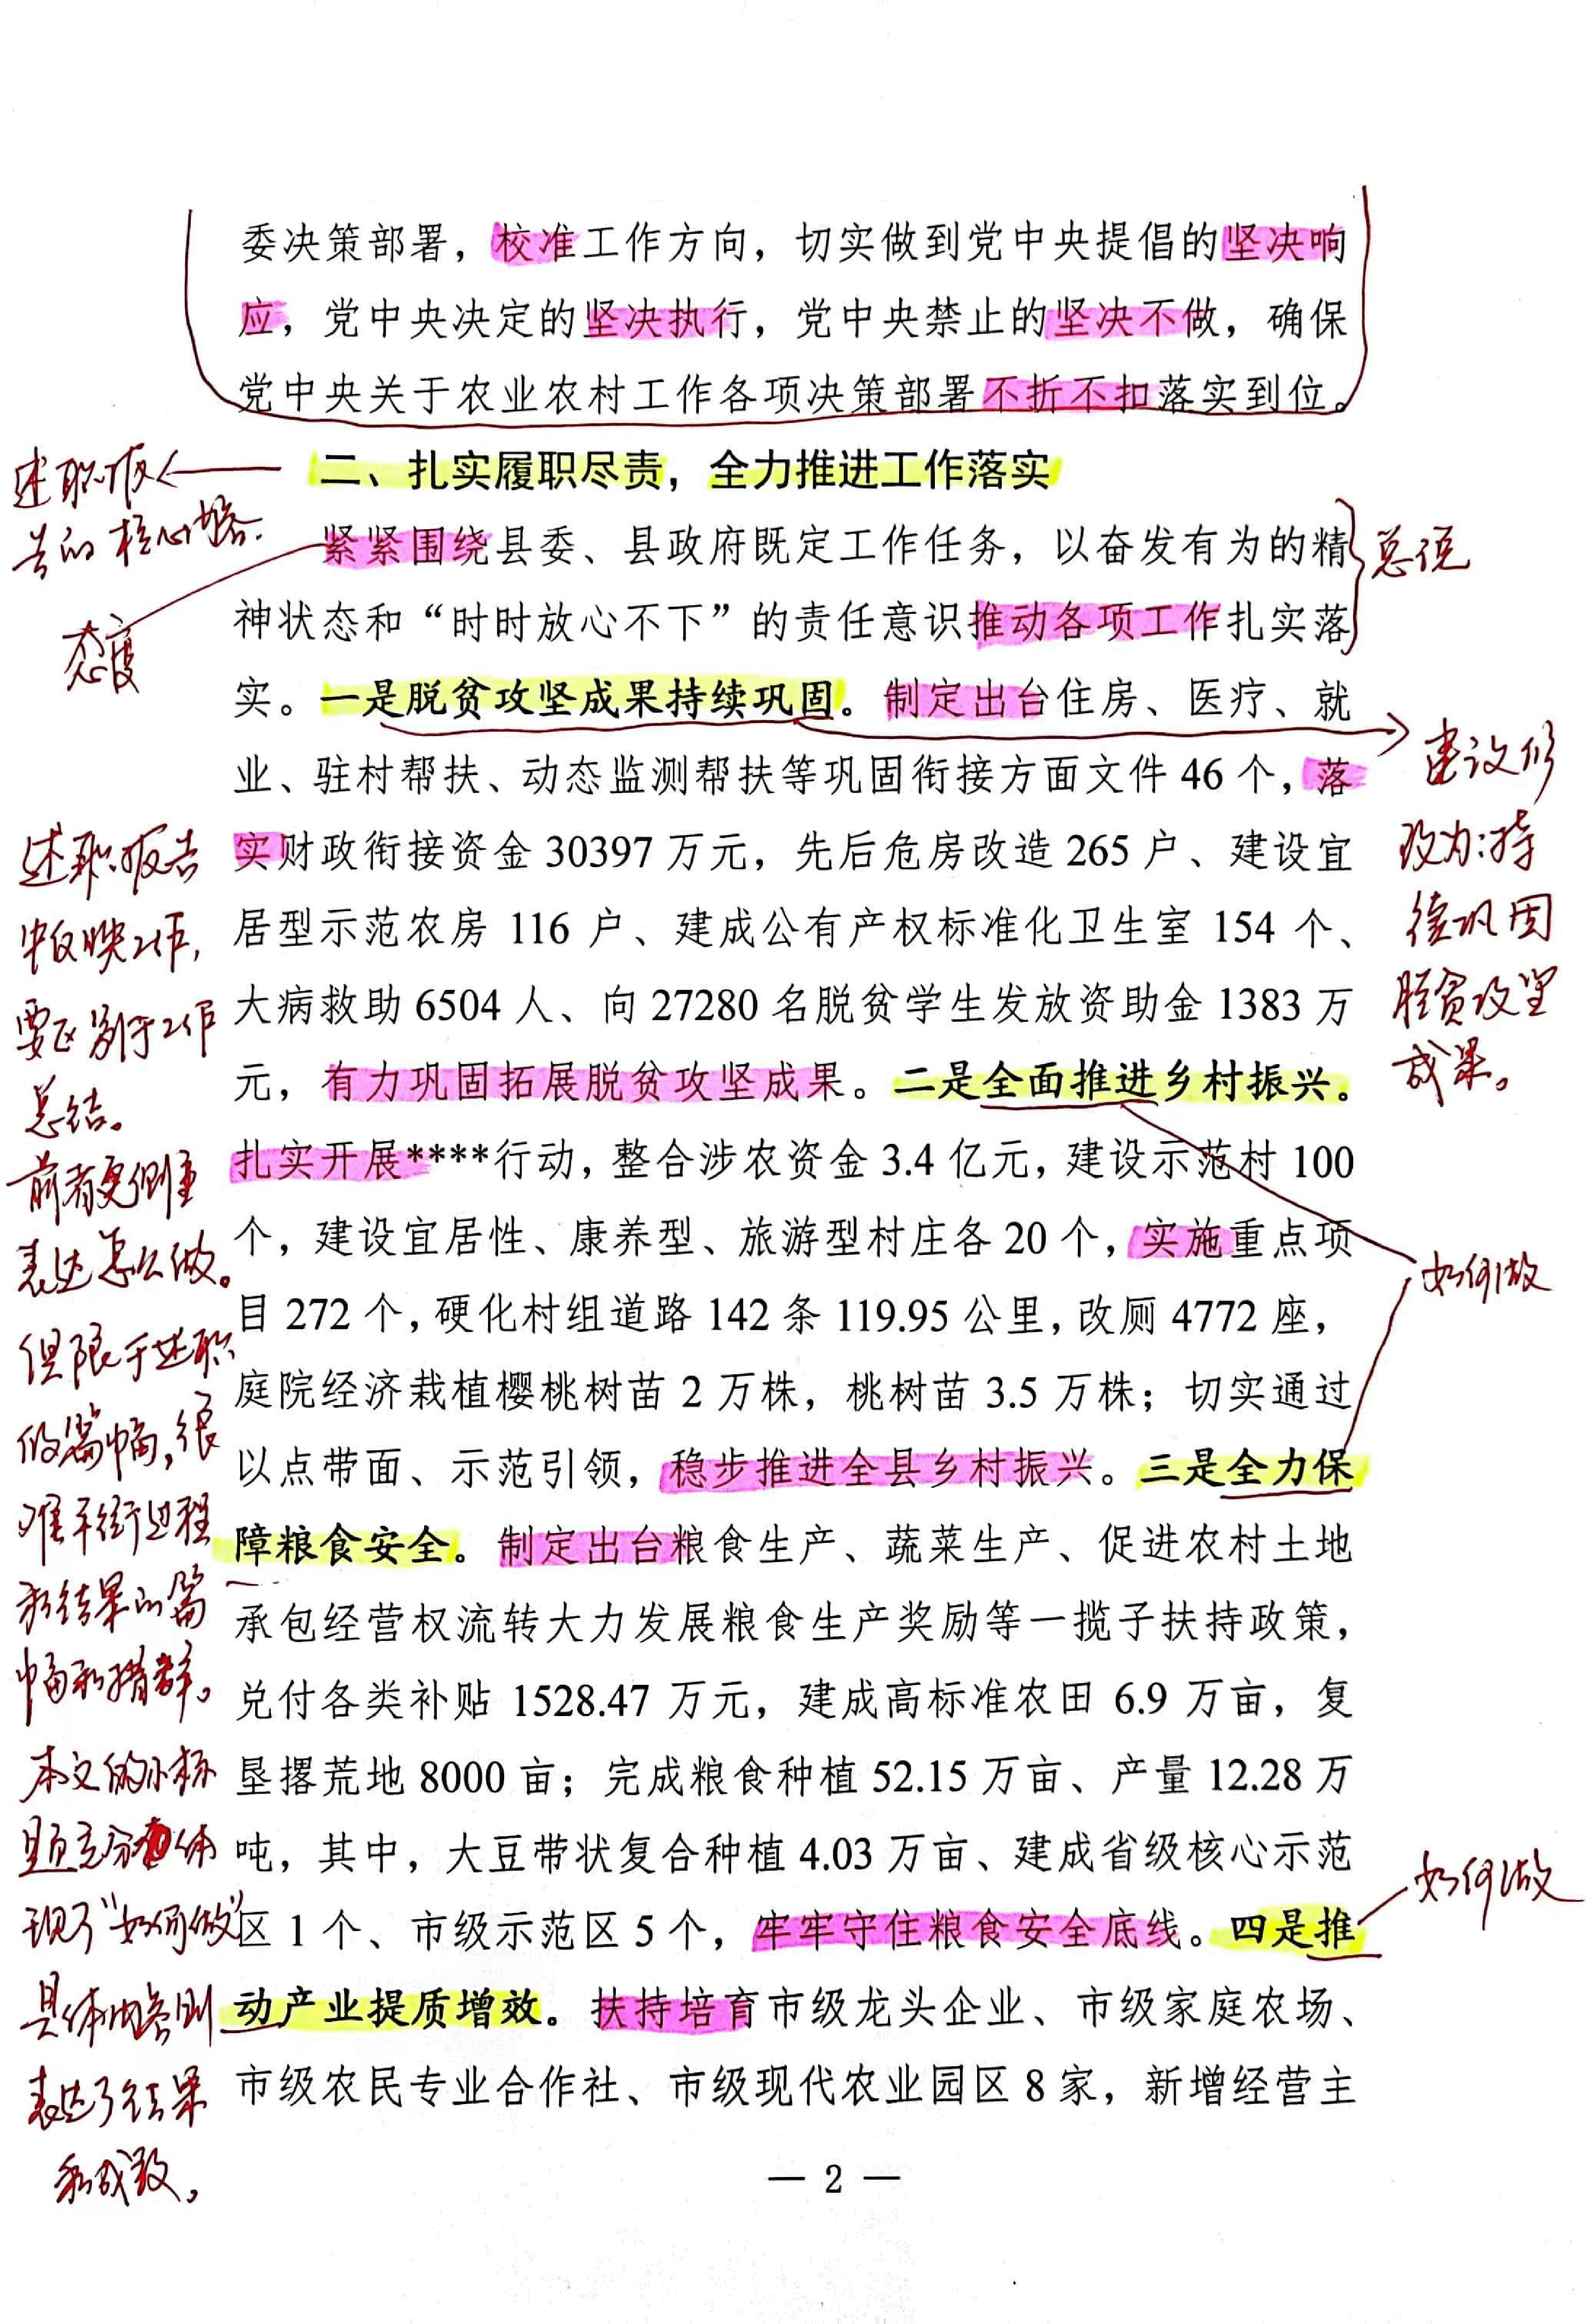 委决策部署，校准工作方向，切实做到党中央提倡的坚决响
应，党中央决定的坚决执行，党中央禁止的坚决不做，确保
党中央关于农业农村工作各项决策部署不折不扣落实到位。
二、扎实履职尽责，全力推进工作落实
紧紧围绕县委、县政府既定工作任务，以奋发有为的精
神状态和“时时放心不下”的责任意识推动各项工作扎实落
实。一是脱贫攻坚成果持续巩固。制定出台住房、医疗、就
业、驻村帮扶、动态监测帮扶等巩固衔接方面文件 46 个，落
实财政衔接资金 30397 万元，先后危房改造 265 户、建设宜
居型示范农房 116 户、建成公有产权标准化卫生室 154 个、
大病救助 6504 人、向 27280 名脱贫学生发放资助金 1383 万
元，有力巩固拓展脱贫攻坚成果。二是全面推进乡村振兴。
扎实开展****行动，整合涉农资金 3.4 亿元，建设示范村 100
个，建设宜居性、康养型、旅游型村庄各 20 个，实施重点项
目 272 个，硬化村组道路 142 条 119.95 公里，改厕 4772 座，
庭院经济栽植樱桃树苗 2 万株，桃树苗 3.5 万株；切实通过
以点带面、示范引领，稳步推进全县乡村振兴。三是全力保
障粮食安全。制定出台粮食生产、蔬菜生产、促进农村土地
承包经营权流转大力发展粮食生产奖励等一揽子扶持政策，
兑付各类补贴 1528.47 万元，建成高标准农田 6.9 万亩，复
垦撂荒地 8000 亩；完成粮食种植 52.15 万亩、产量 12.28 万
吨，其中，大豆带状复合种植 4.03 万亩、建成省级核心示范
区 1 个、市级示范区 5 个，牢牢守住粮食安全底线。四是推
动产业提质增效。扶持培育市级龙头企业、市级家庭农场、
市级农民专业合作社、市级现代农业园区 8 家，新增经营主
— 2 —
述职报
告的核心内容.
态度
述职报告
中反映工作，
要区别于工作
总结。
前者更侧重
表达怎么做。
但限于述职
的篇幅，很
难平衡过程
和结果的篇
幅和措辞。
本文的小标
题充分体
现了“如何做”
具体内容则
表达了结果
和成效。
总说
建议修
改为：持
续巩固
脱贫攻坚
成果。
如何做
如何做